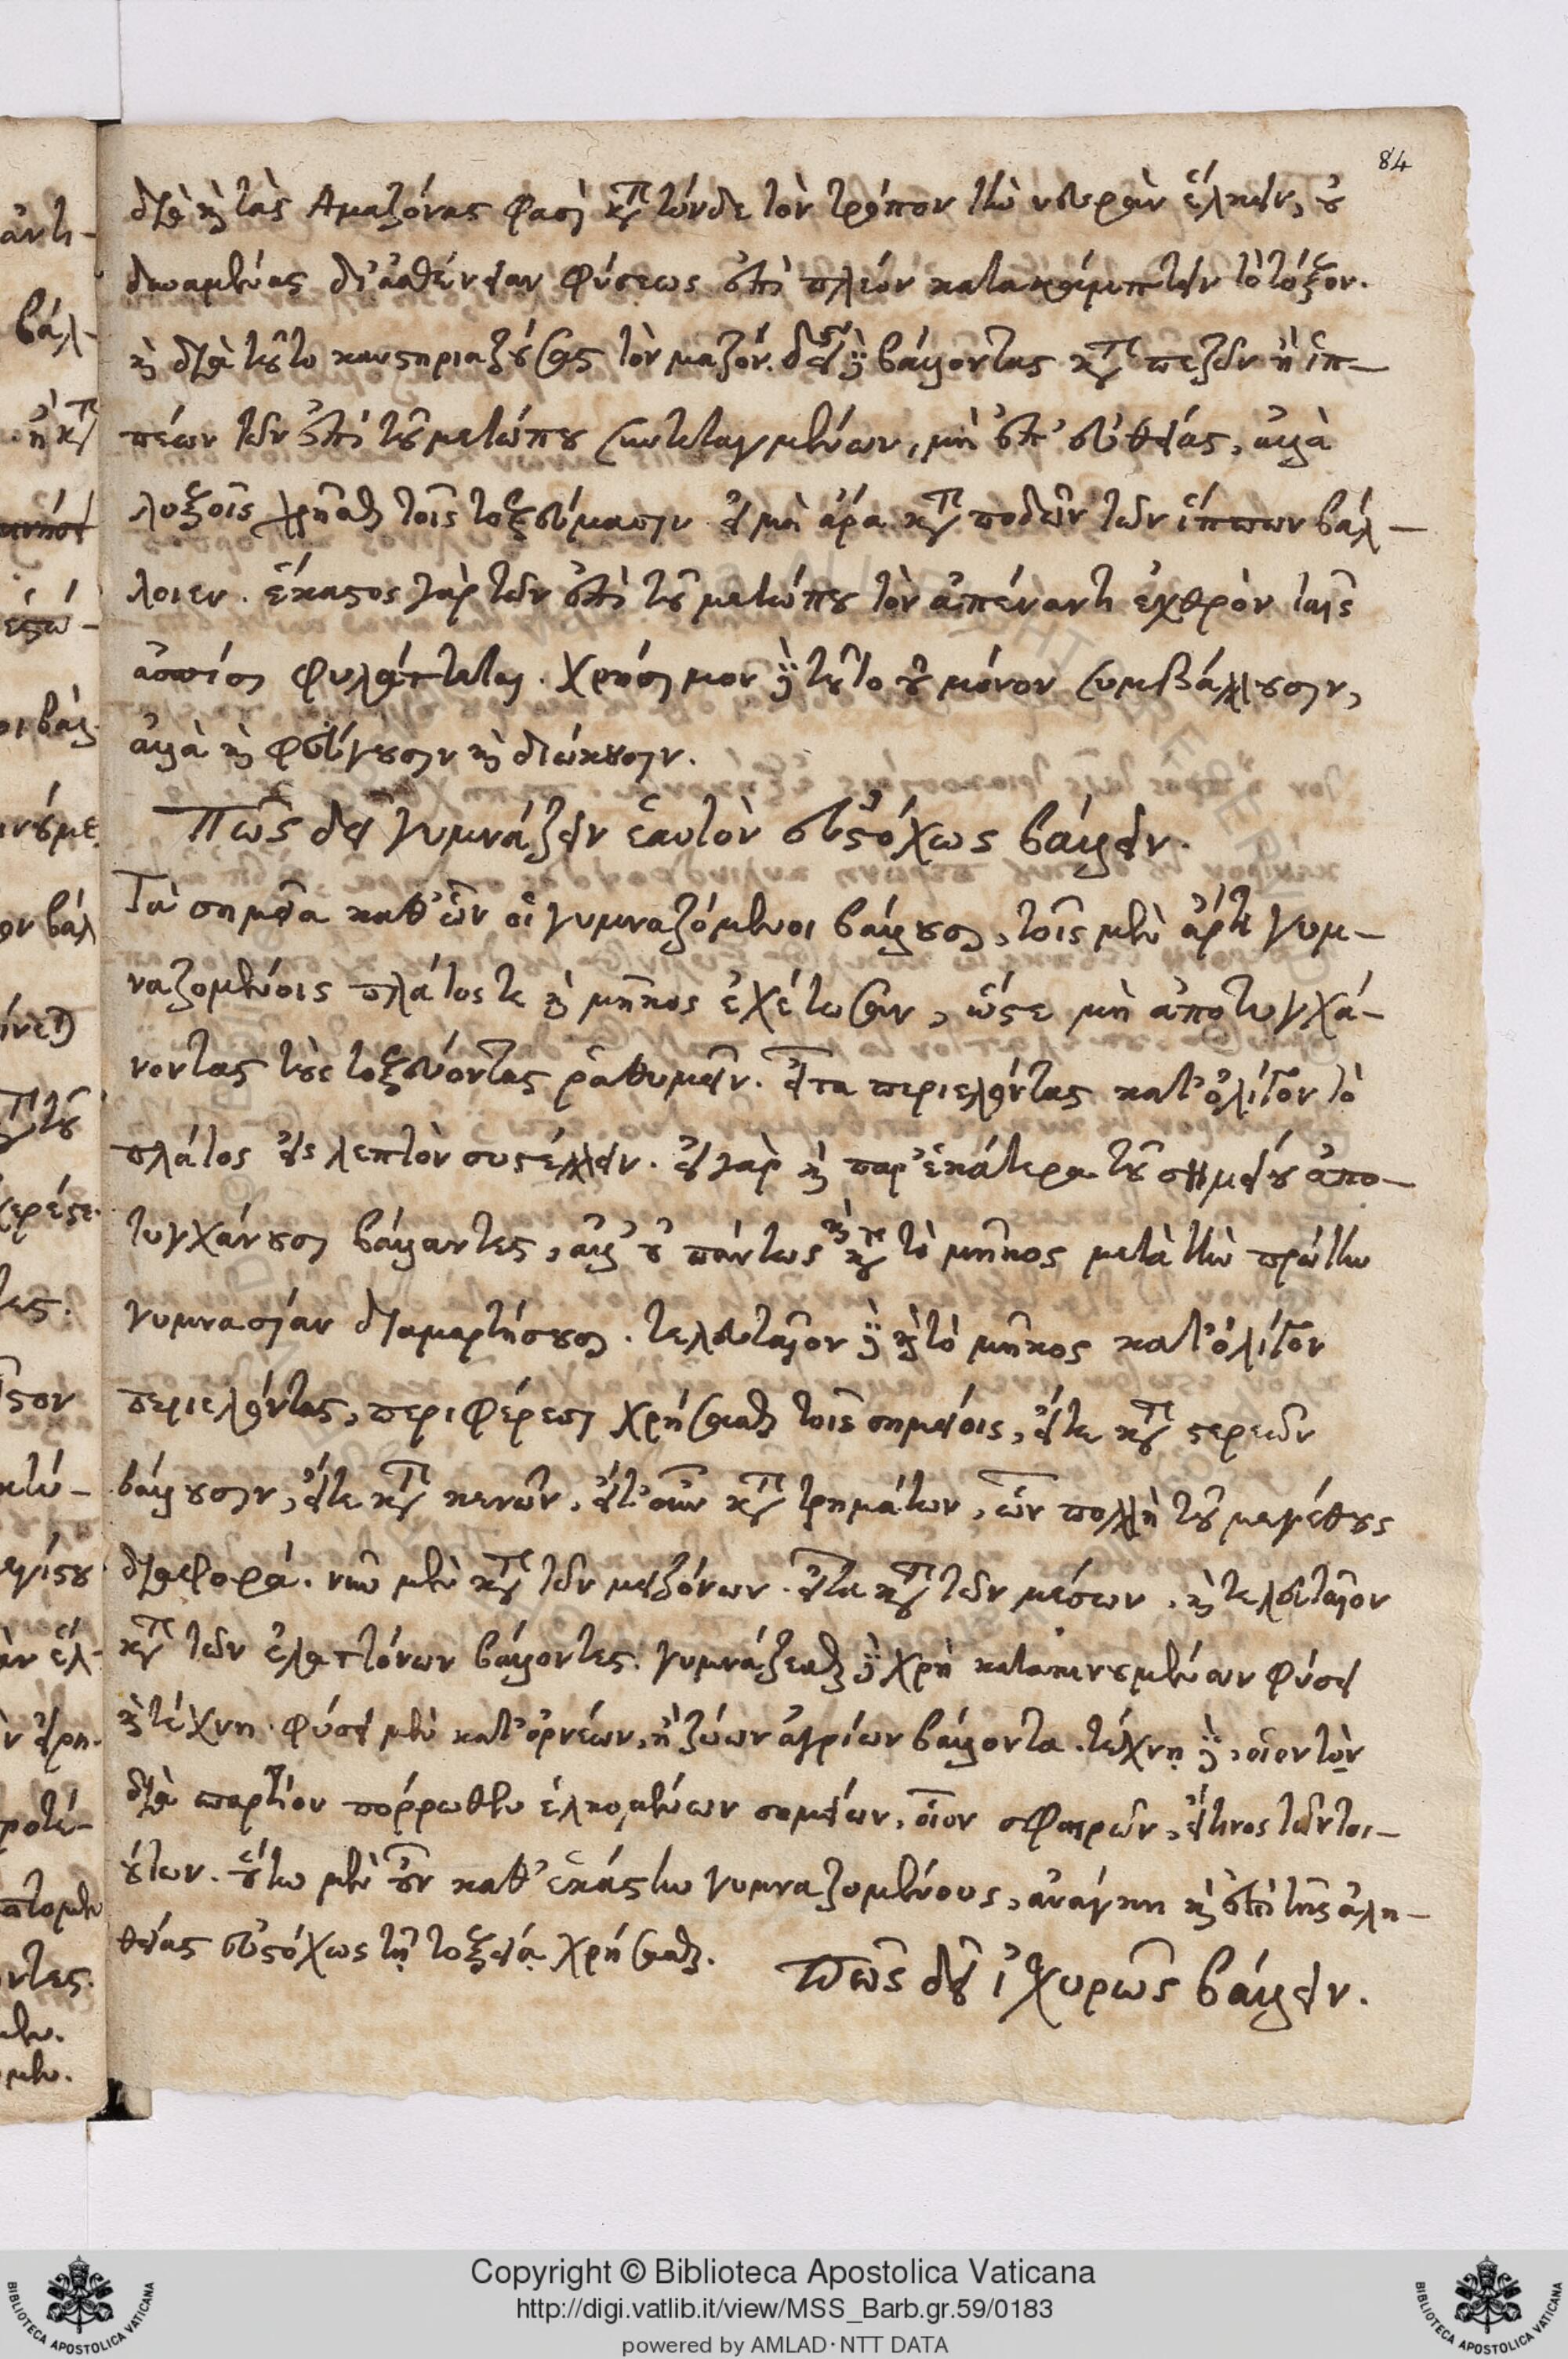 84
διὸ καὶ τὰς Ἀμαζόνας φασὶ κατὰ τόνδε τὸν τρόπον τὴν νευρὰν ἕλκειν, οὐ
δυναμένας δι' ἀσθένειαν φύσεως ἐπὶ πλέον κατακάμπτειν τὸ τόξον.
καὶ διὰ τοῦτο καυστηριαζούσας τὸν μαζόν. δεῖ δὲ βάλλοντας κατὰ πεζῶν ἢ ἱπ-
πέων τῶν ἐπὶ τοῦ μετώπου συντεταγμένων, μὴ ἐπ' εὐθείας, ἀλλὰ
λοξοῖς χρῆσθαι τοῖς τοξεύμασιν εἰ μὴ ἄρα κατὰ ποδῶν τῶν ἵππων βάλ-
λοιεν. ἕκαστος γὰρ τῶν ἐπὶ τοῦ μετώπου τὸν ἀπέναντι ἐχθρὸν ταῖς
ἀσπίσι φυλάττεται. χρήσιμον δὲ τοῦτο οὐ μόνον συμβάλλουσιν,
ἀλλὰ καὶ φεύγουσιν καὶ διώκουσιν.
Πῶς δεῖ γυμνάζειν ἑαυτὸν εὐστόχως βάλλειν.
Τὰ σημεῖα καθ' ὧν οἱ γυμναζόμενοι βάλλουσι, τοῖς μὲν ἄρτι γυμ-
ναζομένοις πλάτος τε καὶ μῆκος ἐχέτωσαν, ὥστε μὴ ἀποτυγχά-
νοντας τοὺς τοξεύοντας ῥαθυμεῖν. εἶτα περιελόντας κατ' ὀλίγον τὸ
πλάτος εἰς λεπτὸν συστέλλειν. εἰ γὰρ καὶ παρ' ἑκάτερα τοῦ σημείου ἀπο-
τυγχάνουσι βάλλοντες, ἀλλ' οὐ πάντως καὶ κατὰ τὸ μῆκος μετὰ τὴν πρώτην
γυμνασίαν διαμαρτήσουσι. τελευταῖον δὲ καὶ τὸ μῆκος κατ' ὀλίγον
περιελόντας, περιφέρεσι χρήσασθαι τοῖς σημείοις, εἴτε κατὰ στερεῶν
βάλλουσιν, εἴτε κατὰ κενῶν, εἴτ' οὖν κατὰ τρημάτων, ὧν πολλὴ τοῦ μεγέθους
διαφορά. νῦν μὲν κατὰ τῶν μειζόνων. εἶτα κατὰ τῶν μέσων, καὶ τελευταῖον
κατὰ τῶν ἐλαττόνων βάλλοντες. γυμνάζεσθαι δὲ χρὴ κατακινουμένων φύσει
καὶ τέχνῃ. φύσει μὲν κατ' ὀρνέων, ἢ ζώων ἀγρίων βάλλοντα. τέχνῃ δέ, οἷον τῶν
διὰ σπαρτίον πόρρωθεν ἑλκομένων σημείων, οἷον σφαιρῶν, εἴ τινος τῶν τοι-
ούτων. οὕτω μὲν οὖν καθ' ἑκάστην γυμναζομένους, ἀνάγκη καὶ ἐπὶ τῆς ἀλη-
θείας εὐστόχως τῇ τοξείᾳ χρήσασθαι. Πῶς δεῖ ἰσχυρῶς βάλλειν.
Copyright © Biblioteca Apostolica Vaticana
http://digi.vatlib.it/view/MSS_Barb.gr.59/0183
powered by AMLAD · NTT DATA
BIBLIOTECA APOSTOLICA VATICANA
BIBLIOTECA APOSTOLICA VATICANA